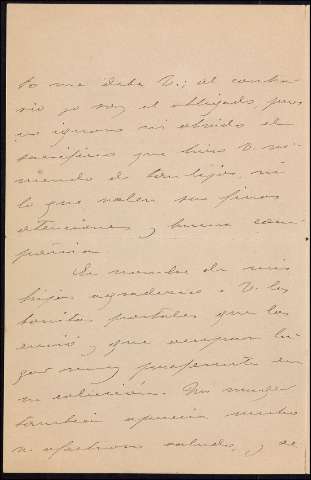 to me debe V.; al contra-
rio yo soy el obligado, pues
no ignoro ni olvido el
sacrificio que hizo V. vi-
niendo de tan lejos, ni
lo que valen sus finas
atenciones y buena com-
pañia.
En nombre de mis
hijas agradezco a V. las
bonitas postales que las
envió y que ocupan lu-
gar muy preferente en
su colección. Mi mujer
tambien aprecia mucho
su afectuoso saludo, y se